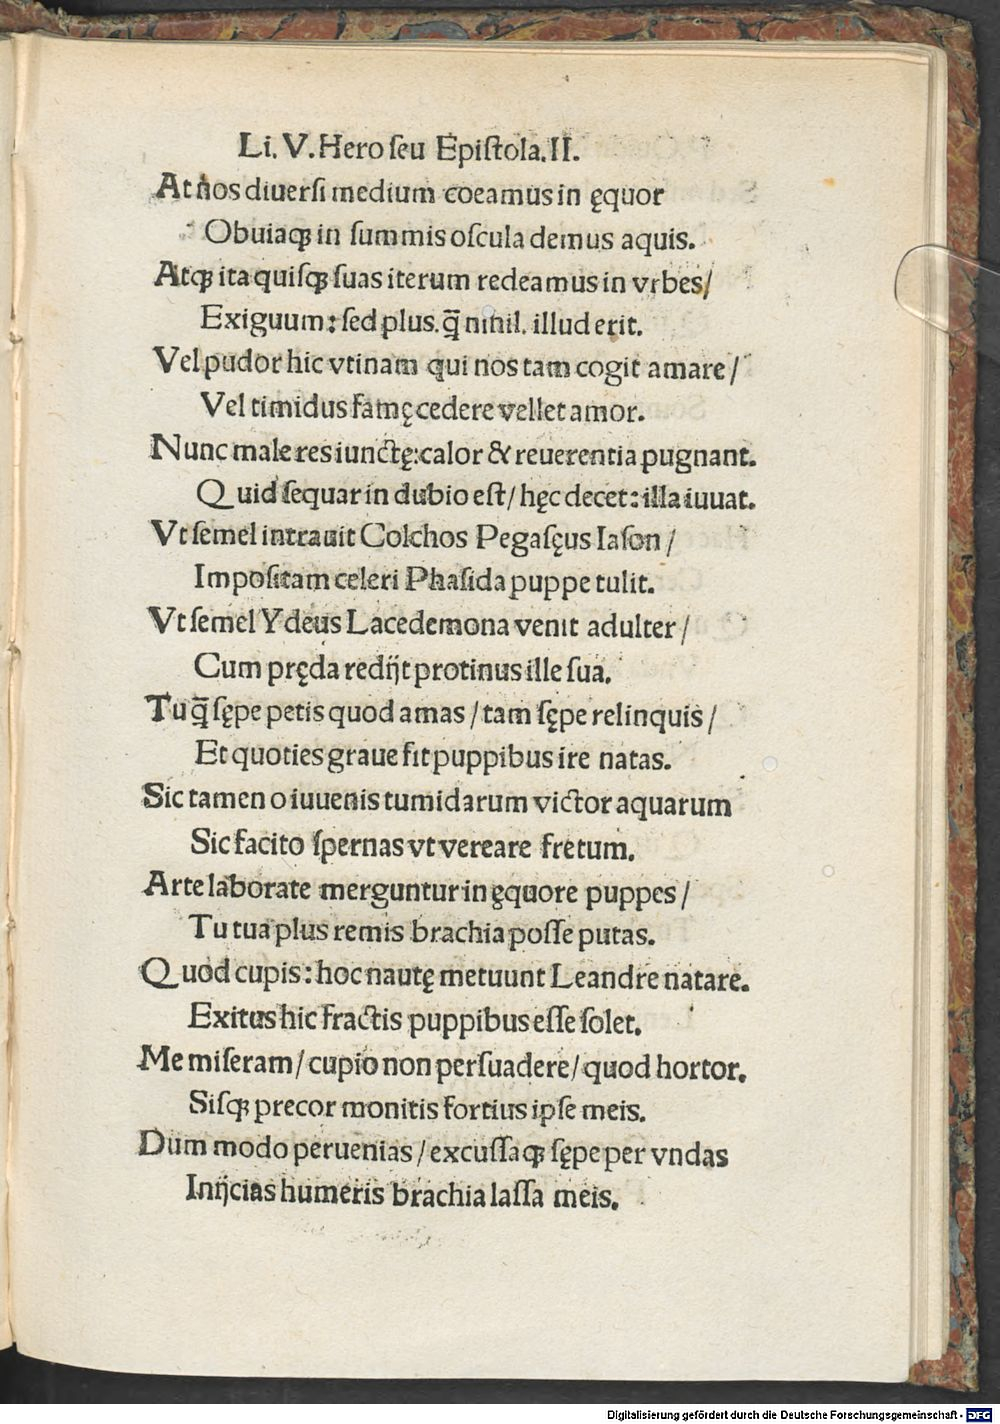 Li. V. Hero ſeu Epiſtola. II.
At nos diuerſi medium coeamus in ęquor
Obuiaqꝫ in ſummis oſcula demus aquis.
Atqꝫ ita quiſqꝫ ſuas iterum redeamus in vrbes/
Exiguum: ſed plus. q̄ nihil. illud erit.
Vel pudor hic vtinam qui nos tam cogit amare/
Vel timidus famę cedere vellet amor.
Nunc male res iunctę: calor & reuerentia pugnant.
Quid ſequar in dubio eſt/ hęc decet: illa iuuat.
Vt ſemel intrauit Colchos Pegaſęus Iaſon/
Impoſitam celeri Phaſida puppe tulit.
Vt ſemel Ydeus Lacedemona venit adulter/
Cum pręda redijt protinus ille ſua.
Tu q̄ ſępe petis quod amas/ tam ſępe relinquis/
Et quoties graue fit puppibus ire natas.
Sic tamen o iuuenis tumidarum victor aquarum
Sic facito ſpernas vt vereare fretum.
Arte laborate merguntur in ęquore puppes/
Tu tua plus remis brachia poſſe putas.
Quod cupis: hoc nautę metuunt Leandre natare.
Exitus hic fractis puppibus eſſe ſolet.
Me miſeram/ cupio non perſuadere/ quod hortor.
Siſqꝫ precor monitis fortius ipſe meis.
Dum modo peruenias/ excuſſaqꝫ ſępe per vndas
Inijcias humeris brachia laſſa meis.
Digitalisierung gefördert durch die Deutsche Forschungsgemeinschaft - DFG